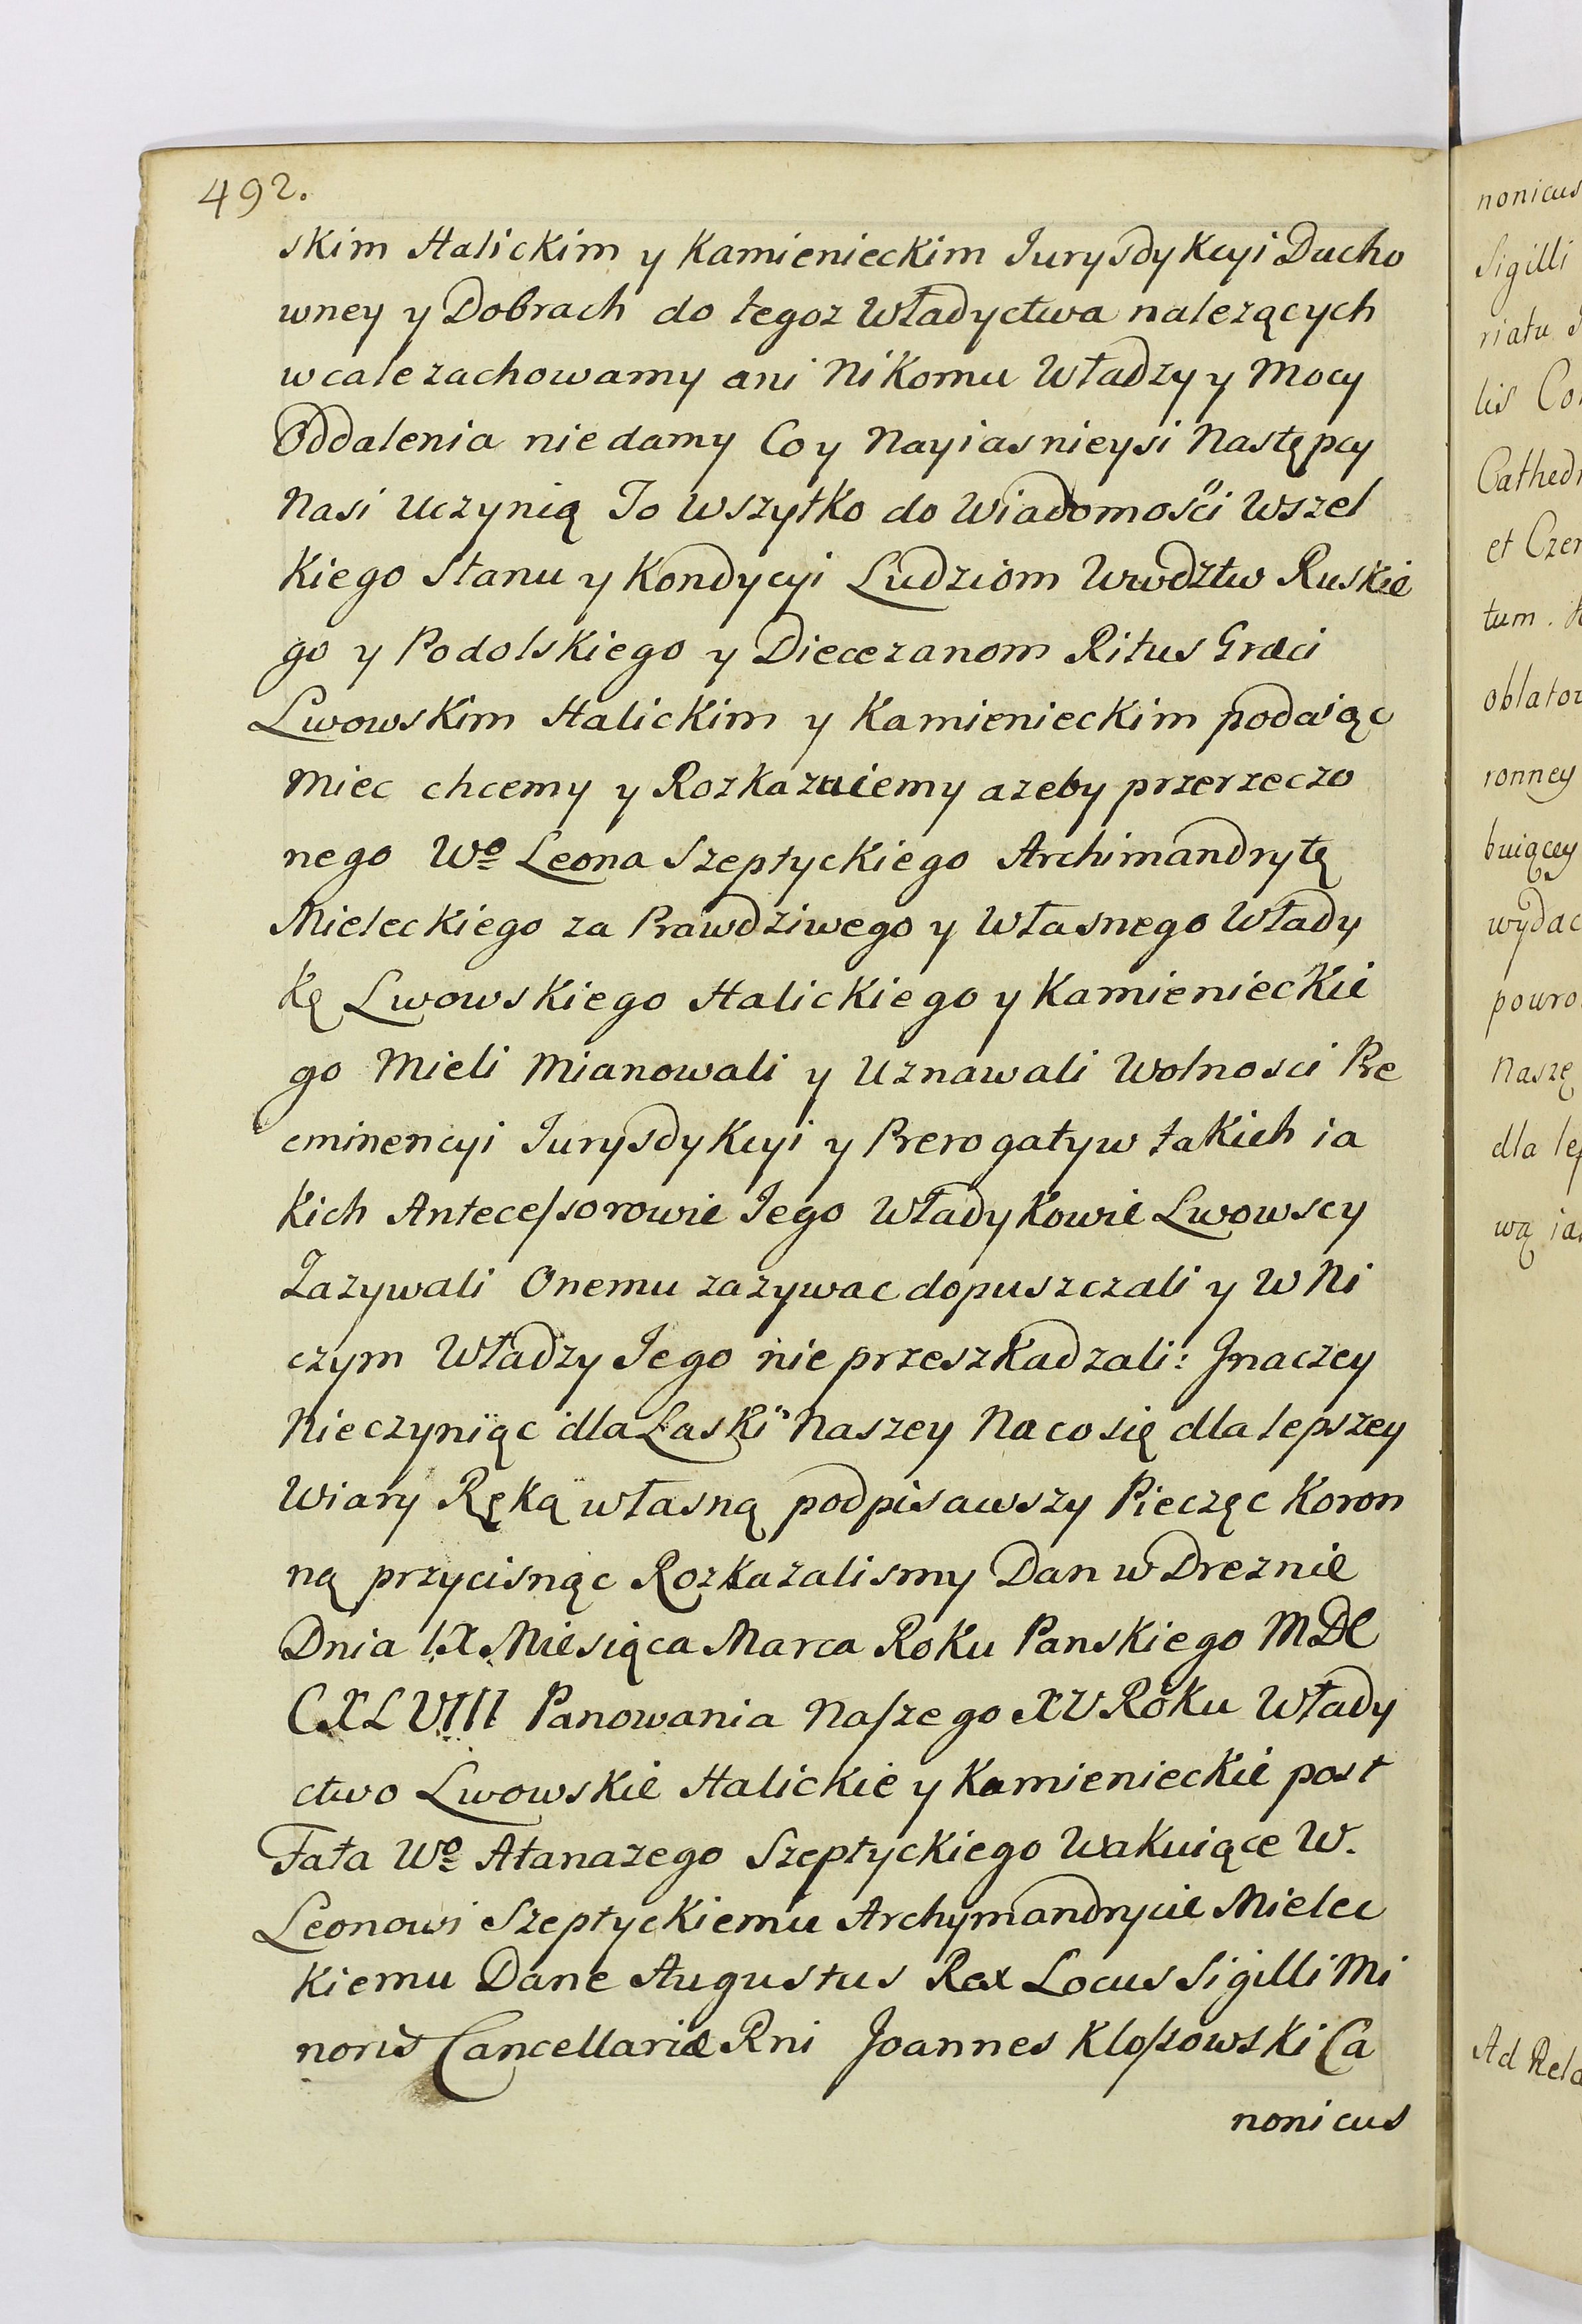 492.
skim Halickim y Kamienieckim Jurysdykcyi Ducho
wney y Dobrach do tegoz Władyctwa nalezących
wcale zachowamy ani Nikomu Władzy y Mocy
Oddalenia niedamy Co y Nayiasnieysi Następcy
Nasi Uczynią To wszytko do Wiadomości Wszel
kiego Stanu y Kondycyi Ludziom Wwdztw Ruskie
go y Podolskiego y Diecezanom Ritus Græci
Lwowskim Halickim y Kamienieckim podaiąc
Miec chcemy y Rozkazuiemy azeby przerzeczo
nego Wo Leona Szeptyckiego Archimandrytę
Mieleckiego za Prawdziwego y Własnego Włady
kę Lwowskiego Halickiego y Kamienieckie
go Mieli Mianowali y Uznawali Wolnosci Pre
eminencyi Jurysdykcyi y Prerogatyw takich ia
kich Antecessorowie Jego Władykowie Lwowscy
Zazywali Onemu zazywac dopuszczali y W Ni
czym Władzy Jego nie przeszkadzali: Jnaczey
Nieczyniąc dla Łaski Naszey Na co się dla lepszey
Wiary Ręką własną podpisawszy Pieczęc Koron
ną przycisnąc Rozkazalismy Dan w Dreznie
Dnia IX Miesiąca Marca Roku Panskiego MDC
CXLVIII Panowania Naszego XV Roku Włady
ctwo Lwowskie Halickie y Kamienieckie post
Fata Wo Atanazego Szeptyckiego Wakuiące W.
Leonowi Szeptyckiemu Archymandrycie Mielec
kiemu Dane Augustus Rex Locus Sigilli Mi
noris Cancellariæ Rni Joannes Klossowski Ca
nonicus
nonicus
Sigilli
riatu
lis
et
tum.
oblator
ronney
buiącey
wydac
powro
Naszę
dla lep
wą
Ad Rela